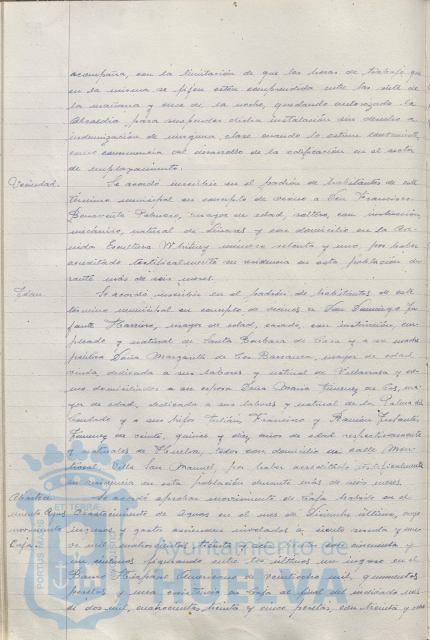 acompaña, con la limitación de que las horas de trabajo que
en la misma se fijen estén comprendida entre las siete de
la mañana y once de la noche, quedando autorizada la
Alcaldía para suspender dicha instalación sin derecho a
indemnización de ninguna clase cuando lo estime conveniente
como consecuencia del desarrollo de la edificación en el sector
de emplazamiento.
Vecindad. Se acordó inscribir en el padrón de habitantes de este
término municipal en concepto de vecino a Don Francisco
mayor de edad, soltero, con instrucción
mecánico, natural de Linares y con domicilio en la Ave
nida Escultora Whitney número setenta y uno, por haber
acreditado testificalmente su residencia en esta población du
rante más de seis meses.
Idem. Se acordó inscribir en el padrón de habitantes de este
término municipal en concepto de vecinos a Don Domingo In
fante mayor de edad, casado, con instrucción, em
pleado y natural de Santa Bárbara de Casa y a su madre
política Doña Margarita de Cos Barranca, mayor de edad
viuda, dedicada a sus labores y natural de Villarrasa y co
mo domiciliados a su esposa Doña María Jiménez de Cos, ma
yor de edad, dedicada a sus labores y natural de la Palma del
Condado y a sus hijos Julián, Francisco y Ramón Infantes
Jiménez de veinte, quince y diez años de edad respectivamente
y naturales de Huelva, todos con domicilio en calle
Villa San Manuel, por haber acreditado testificalmente
su residencia en esta población durante más de seis meses.
Se acordó aprobar movimiento de Caja habido en el
Abastecimiento de Aguas en el mes de Diciembre último, cuyo
movimiento ingresos y gastos nivelados a ciento treinta y
Caja. mil cuatrocientas treinta y cincuenta y
un céntimos figurando entre los últimos un ingreso en el
Banco Hispano Americano de veintiocho mil, quinientas
pesetas y una existencia en Caja al final del indicado mes
de dos mil, cuatrocientas treinta y cinco pesetas, con treinta y
Ayuntamiento de
HUELVA